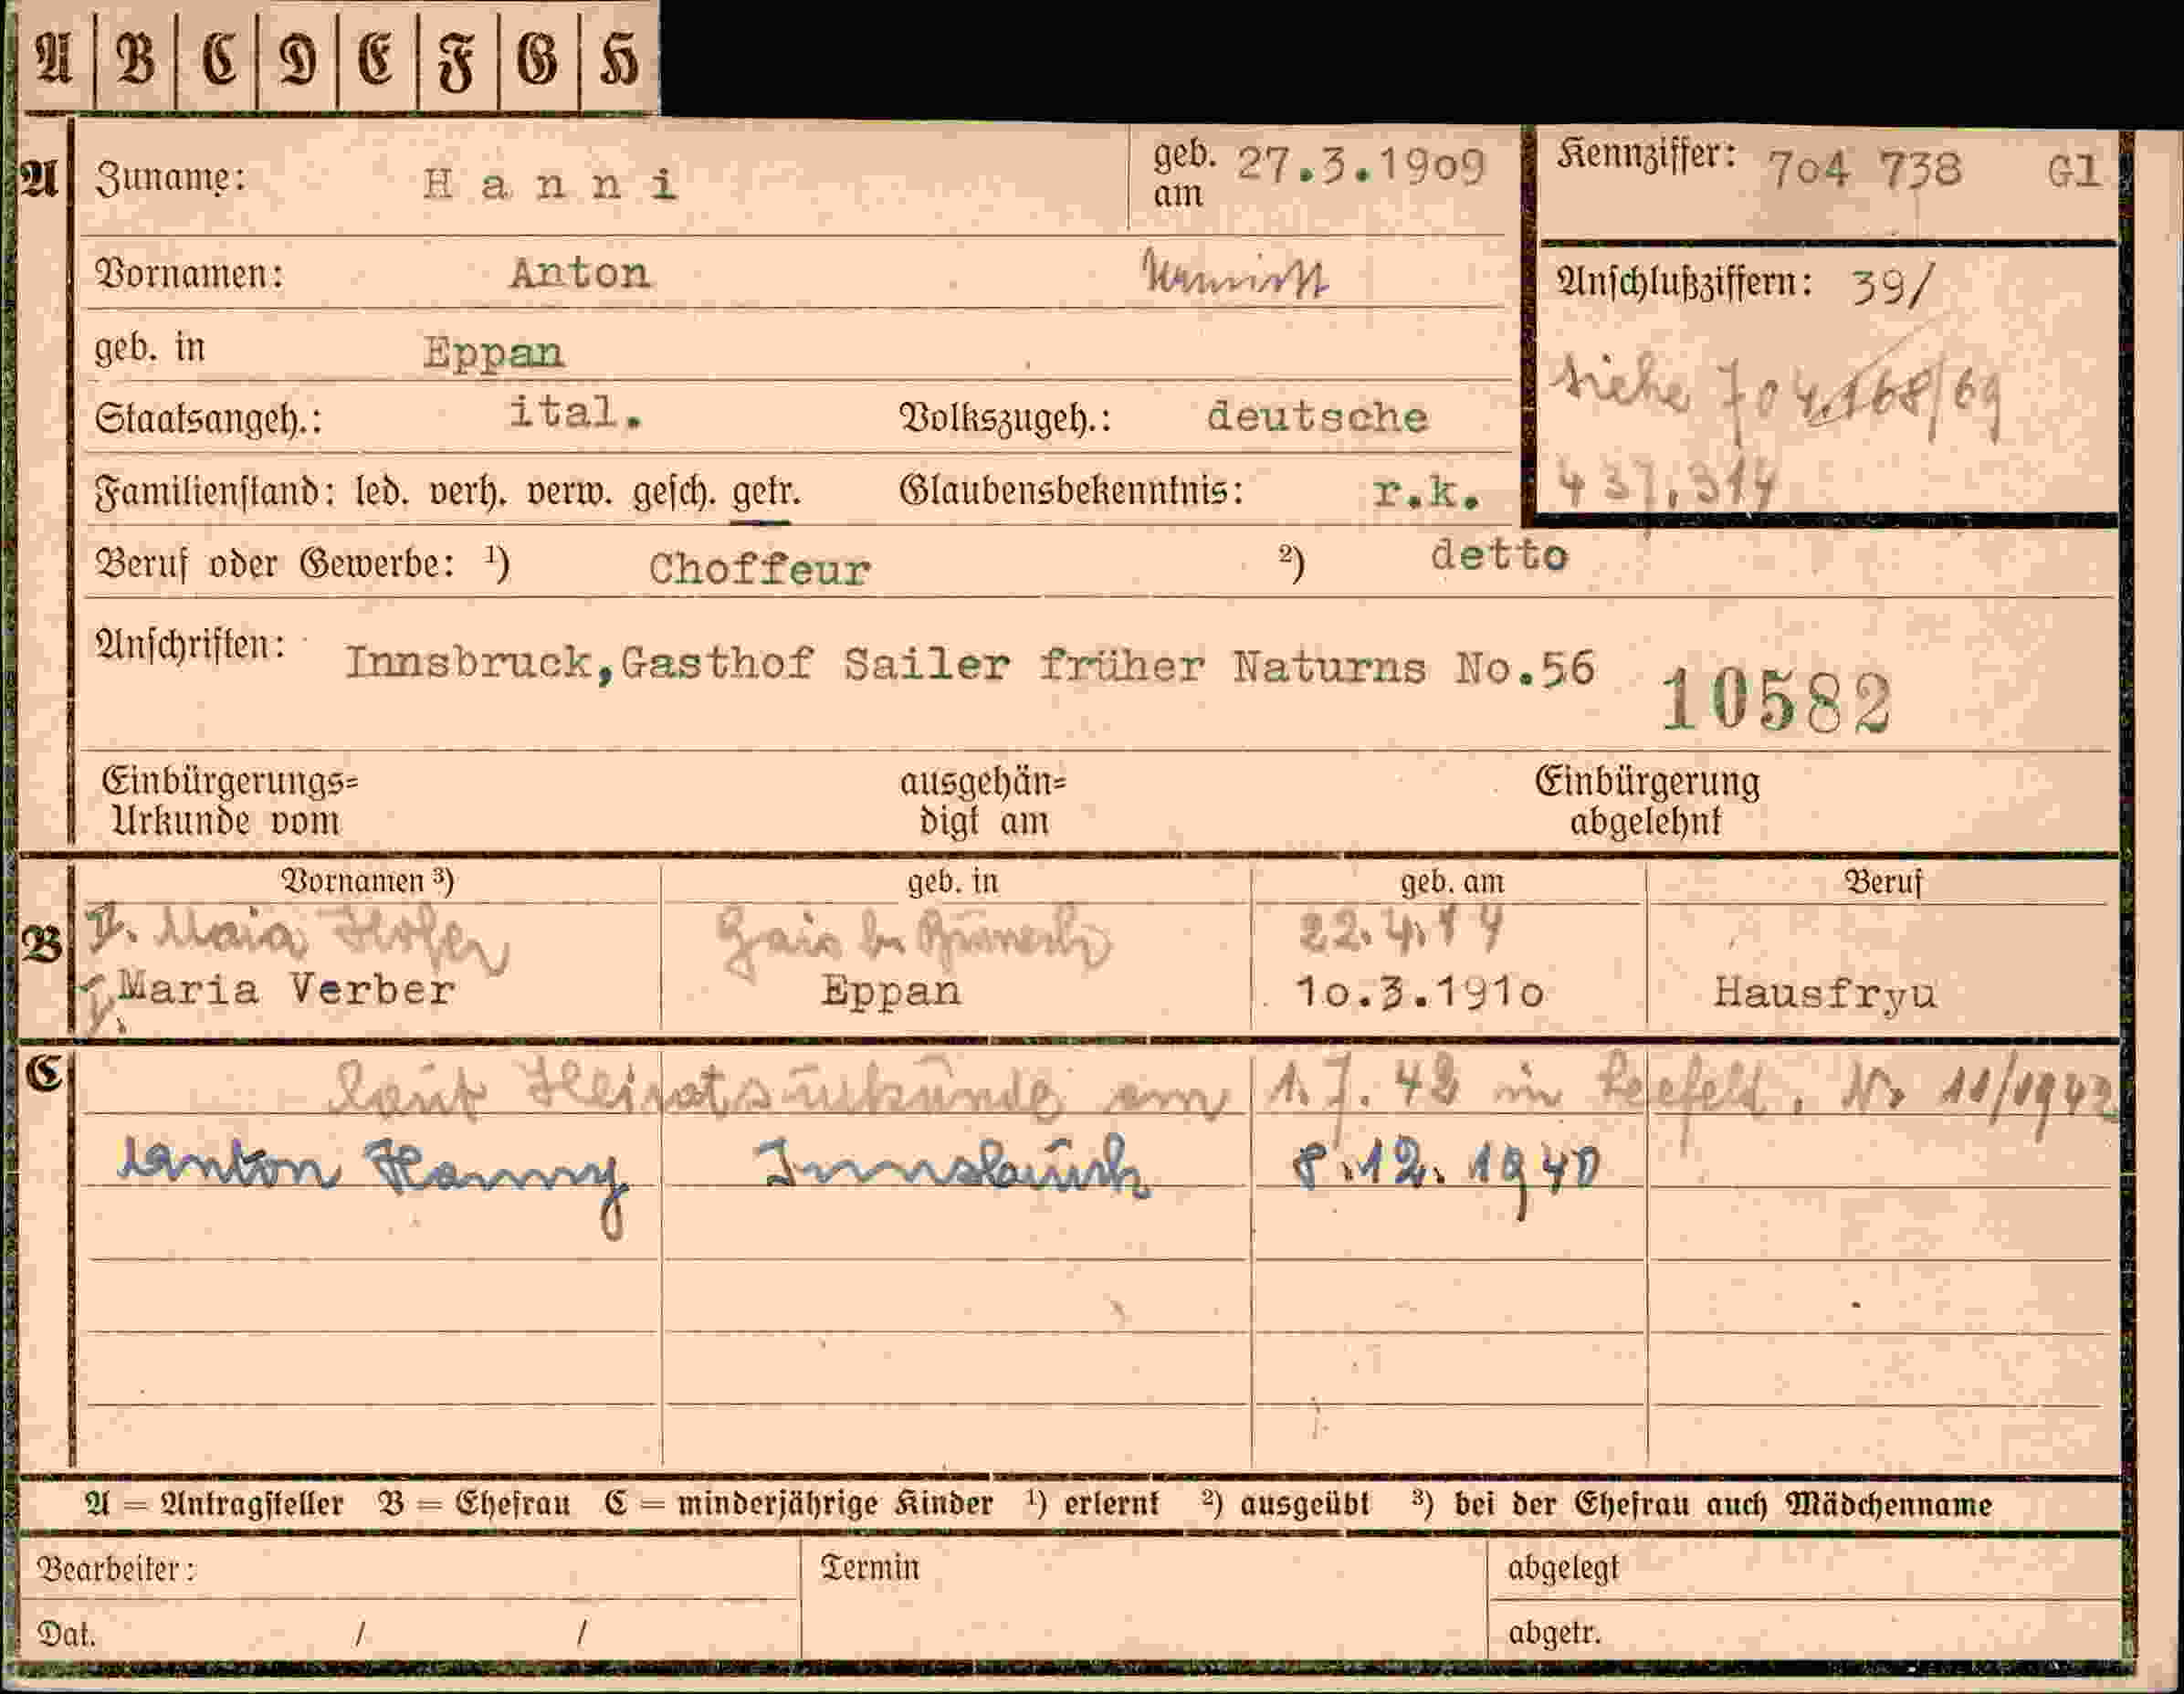 A B C D E F G H
A Zuname: Hanni geb. am 27.3.1909 Kennziffer: 704 738 Gl
Vornamen: Anton Anschlußziffern: 39/
geb. in Eppan siehe 704,168/69
Staatsangeh.: ital. Volkszugeh.: deutsche
Familienstand: led. verh. verw. gesch. getr. Glaubensbekenntnis: r.k. 437,314
Beruf oder Gewerbe: ¹) Choffeur ²) detto
Anschriften: Innsbruck,Gasthof Sailer früher Naturns No.56 10582
Einbürgerungs= ausgehän= Einbürgerung
Urkunde vom digt am abgelehnt
Vornamen ³) geb. in geb. am Beruf
B II. Maria Hofer Gais 22.4.14
I. Maria Verber Eppan 10.3.1910 Hausfryu
C laut Heiratsurkunde am 1.7.42 in Seefeld, Nr 11/1942
Anton Hanny Innsbruck 8.12.1940
A = Antragsteller B = Ehefrau C = minderjährige Kinder ¹) erlernt ²) ausgeübt ³) bei der Ehefrau auch Mädchenname
Bearbeiter: Termin abgelegt
Dat. / / abgetr.